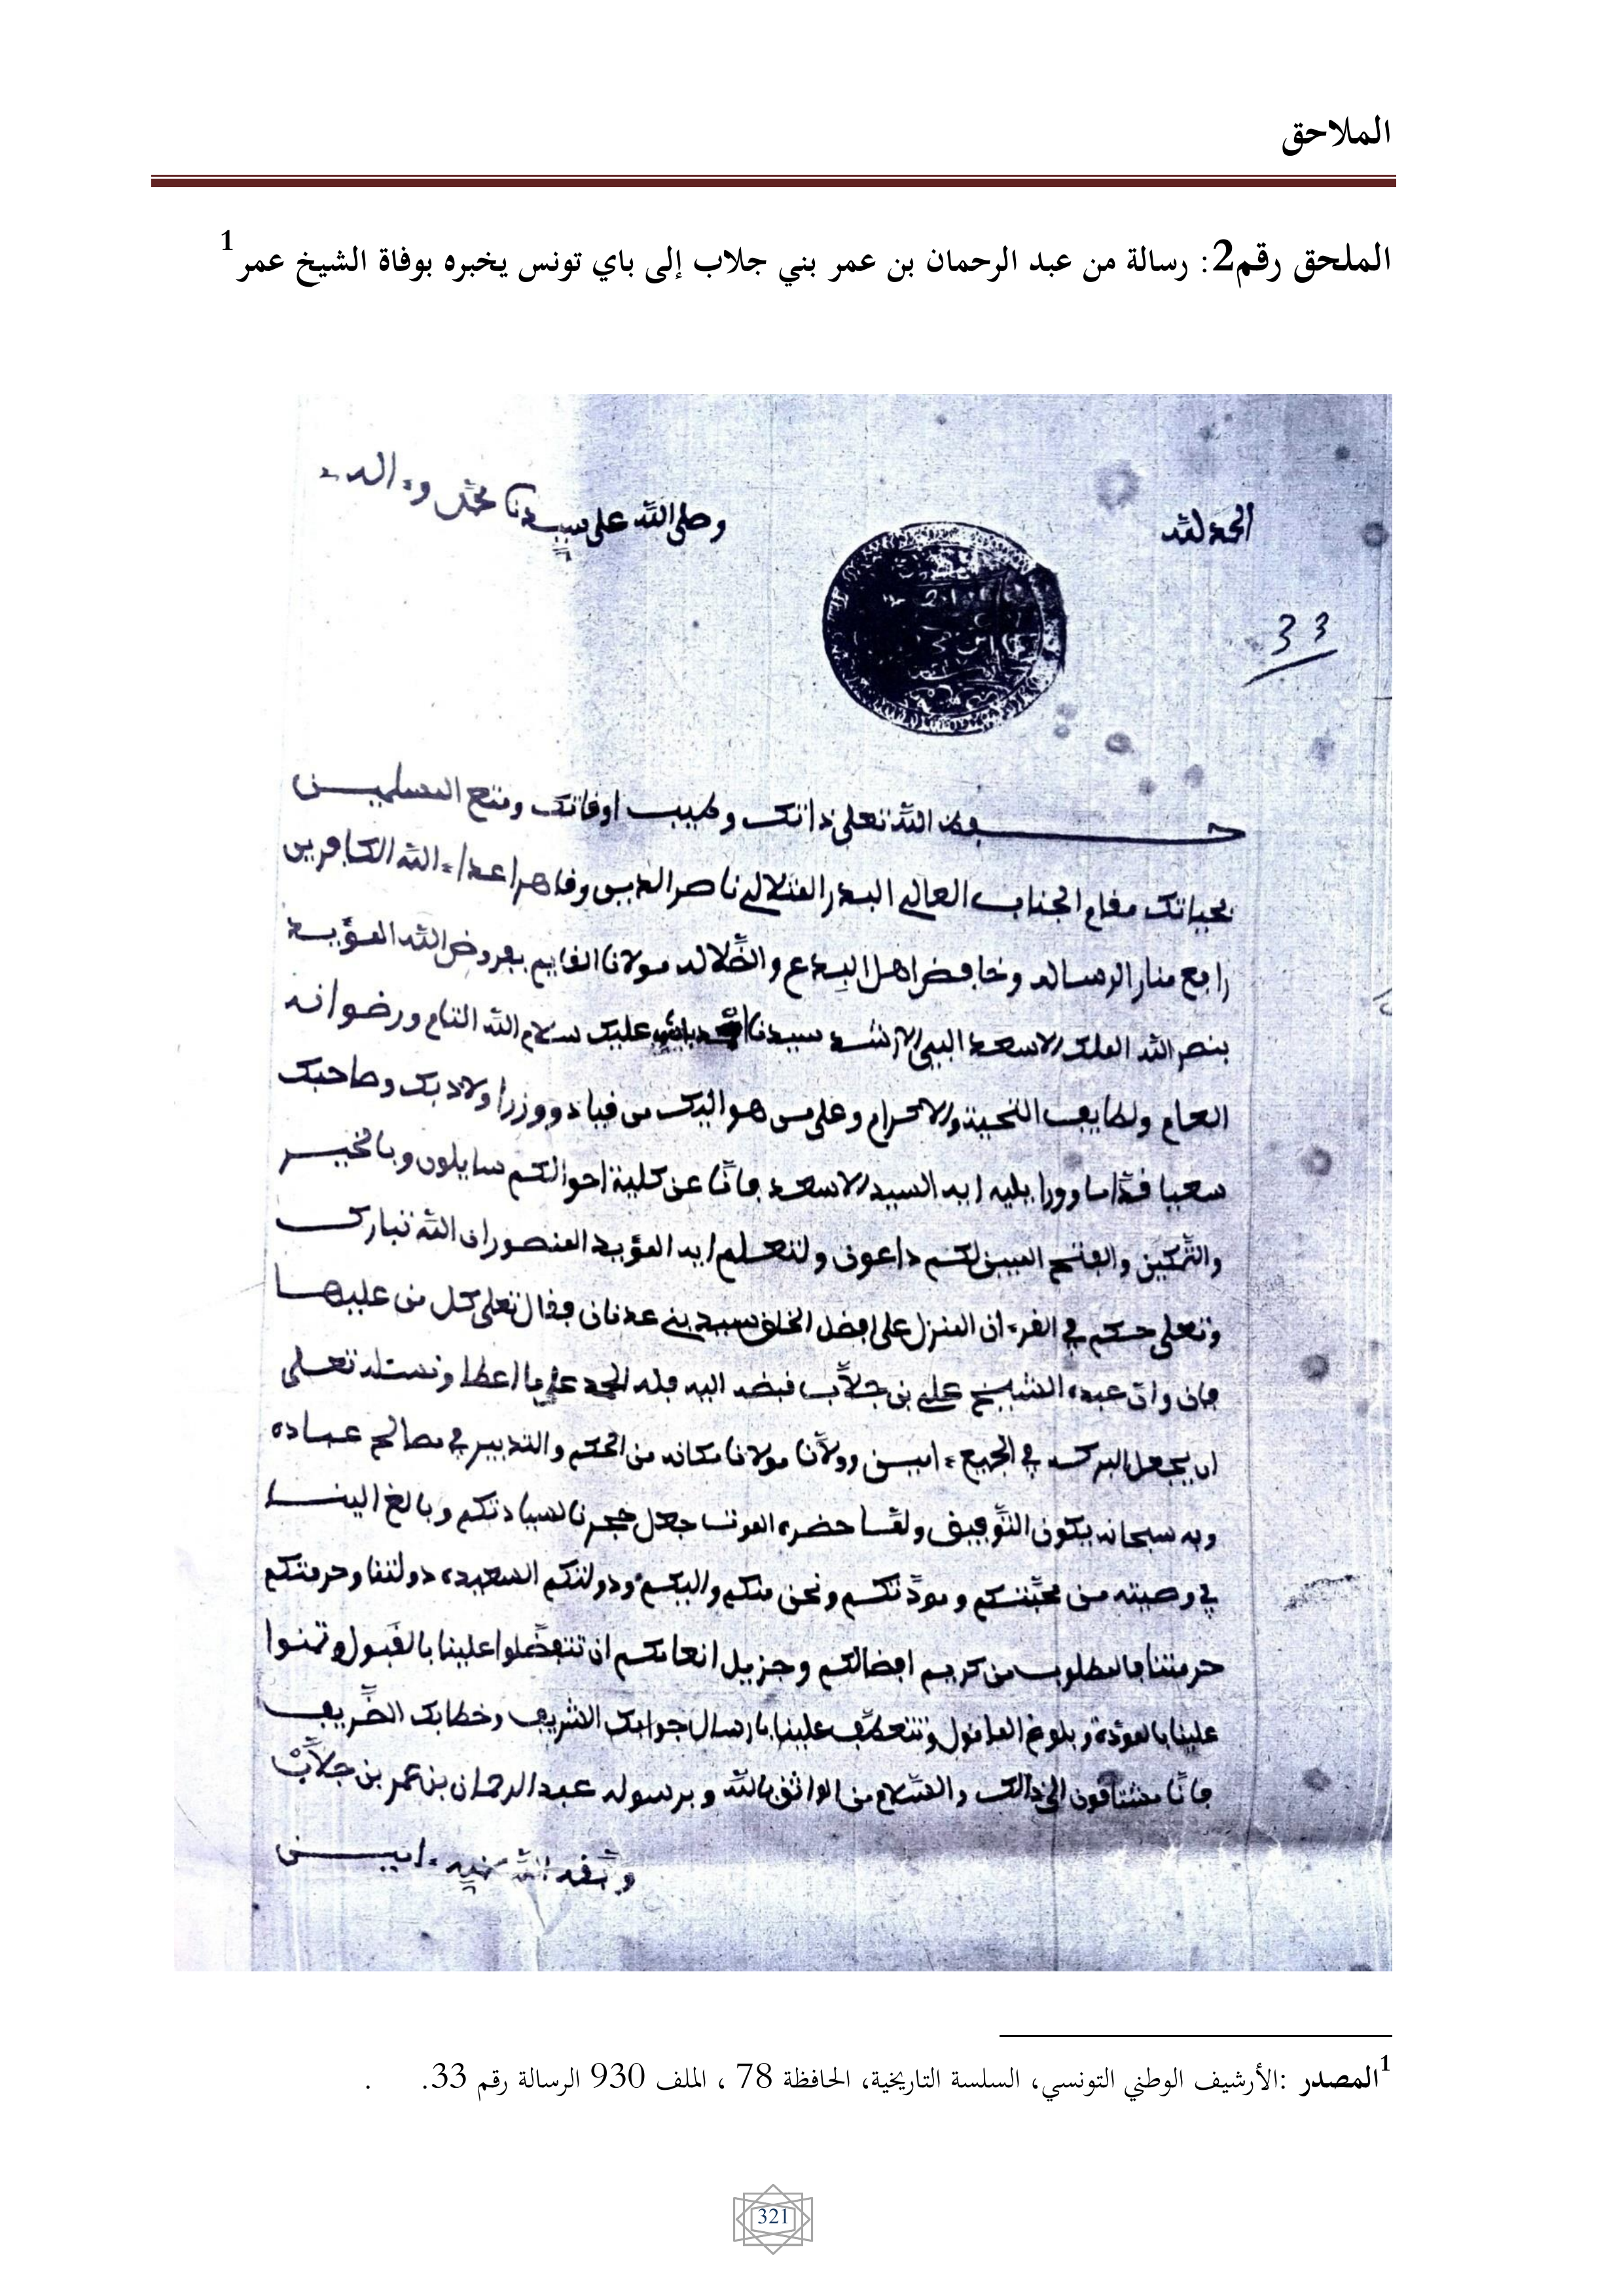 الملاحق
الملحق رقم2: رسالة من عبد الرحمان بن عمر بني جلاب إلى باي تونس يخبره بوفاة الشيخ عمر1
الحمد لله
وصلى الله على سيدنا محمد وءاله
33
حفظ الله تعلى ذاتك وطيب اوقاتك ومتع المسلمين
بحياتك مقام الجناب العالي البدر المتلالي ناصر الدين وقاهر اعداء الله الكافرين
رافع منار الرساله وخافض اهل البدع والضلاله مولانا القايم بفروض الله المؤيد
بنصر الله الملك الاسعد البي الارشد سيدنا عليك سلام الله التام ورضوانه
العام ولطايف التحية والاكرام وعلى من هو اليك من قياد ووزرا ولاد بك وصاحبك
سعيا قداما وورا يليه ايه السيد الاسعد فانا عن كلية احوالكم سايلون وبالخير
والتمكين والفتح المبين لكم داعون ولتعلم ايه المؤيد المنصور ان الله تبارك
وتعلى حكم في القرءان المنزل على افضل الخلق سيد بني عدنان فقال تعلى كل من عليها
فان وان عبده الشيخ علي بن جلاب قبضه اليه فله الحمد على ما اعطا ونسئله تعلى
ان يجعل البركه في الجميع ءامين وولانا مولانا مكانه من الحكم والتدبير في مصالح عباده
وبه سبحانه يكون التوفيق ولما حضره الموت جعل حجرنا لسيادتكم وبالغ الينا
في وصيته من محبتكم ومودتكم ونحن منكم واليكم ودولتكم السعيده دولتنا وحرمتكم
حرمتنا فالمطلوب من كريم افضالكم وجزيل انعامكم ان تتفضلوا علينا بالقبول وتمنوا
علينا بالمودة وبلوغ المامول وتتعطف علينا بارسال جوابك الشريف وخطابك الظريف
فانا مشتاقون الى ذالك والسلام من الواثق بالله وبرسوله عبد الرحمان بن عمر بن جلاب
وفقه الله بمنه ءامين
1المصدر :الأرشيف الوطني التونسي، السلسة التاريخية، الحافظة 78 ، الملف 930 الرسالة رقم 33. .
321